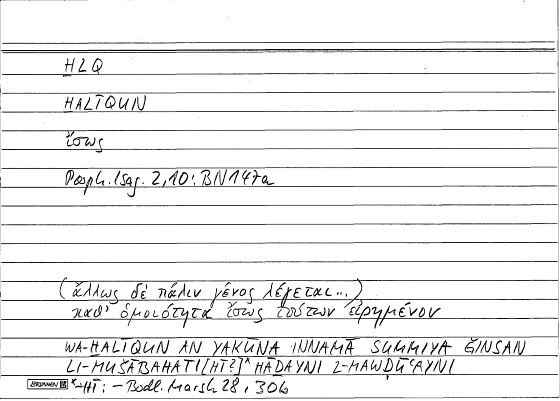 ḪLQ
ḪALĪQUN
ἴσως
Porph. Isag. 2,10: BN 147a
(ἄλλως δὲ πάλιν γένος λέγεται...)
καθ' ὁμοιότητα ἴσως τούτων εἰρημένον
WA-ḪALĪQUN AN YAKŪNA INNAMĀ SUMMIYA ǦINSAN
LI-MUŠĀBAHATI [HĪ?]* HĀḎAYNI L-MAWḌŪʿAYNI
*HĪ: – Bodl. Marsh 28, 30b